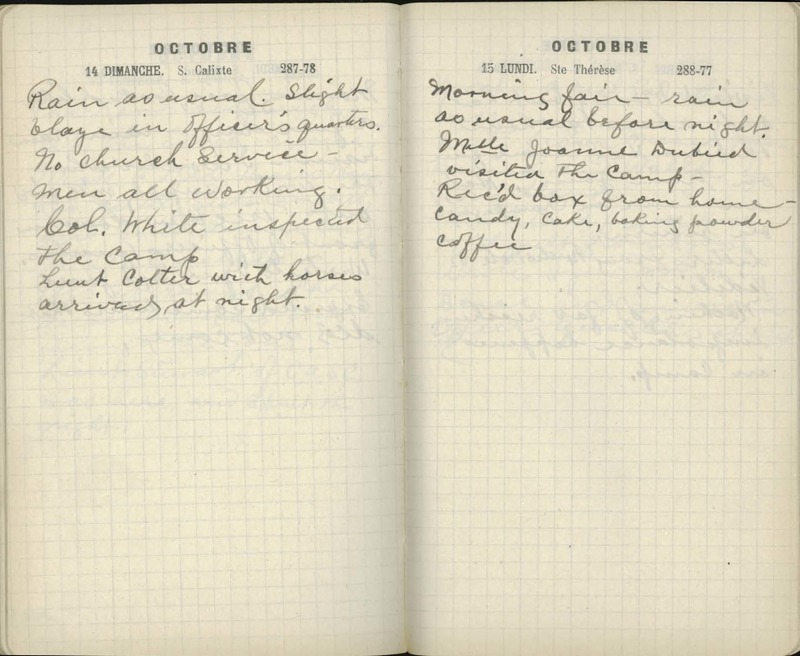 OCTOBRE
14 DIMANCHE. S. Calixte 287-78
Rain as usual. Slight
blaze in officer's quarters.
No church service -
Men all working.
Col. White inspected
the camp
Lieut Colter with horses
arrived at night.
OCTOBRE
15 LUNDI. Ste Thérèse 288-77
Morning fair - rain
as usual before night.
Mlle Joanne Dubied
visited the camp -
Rec'd box from home -
candy, cake, baking powder
coffee